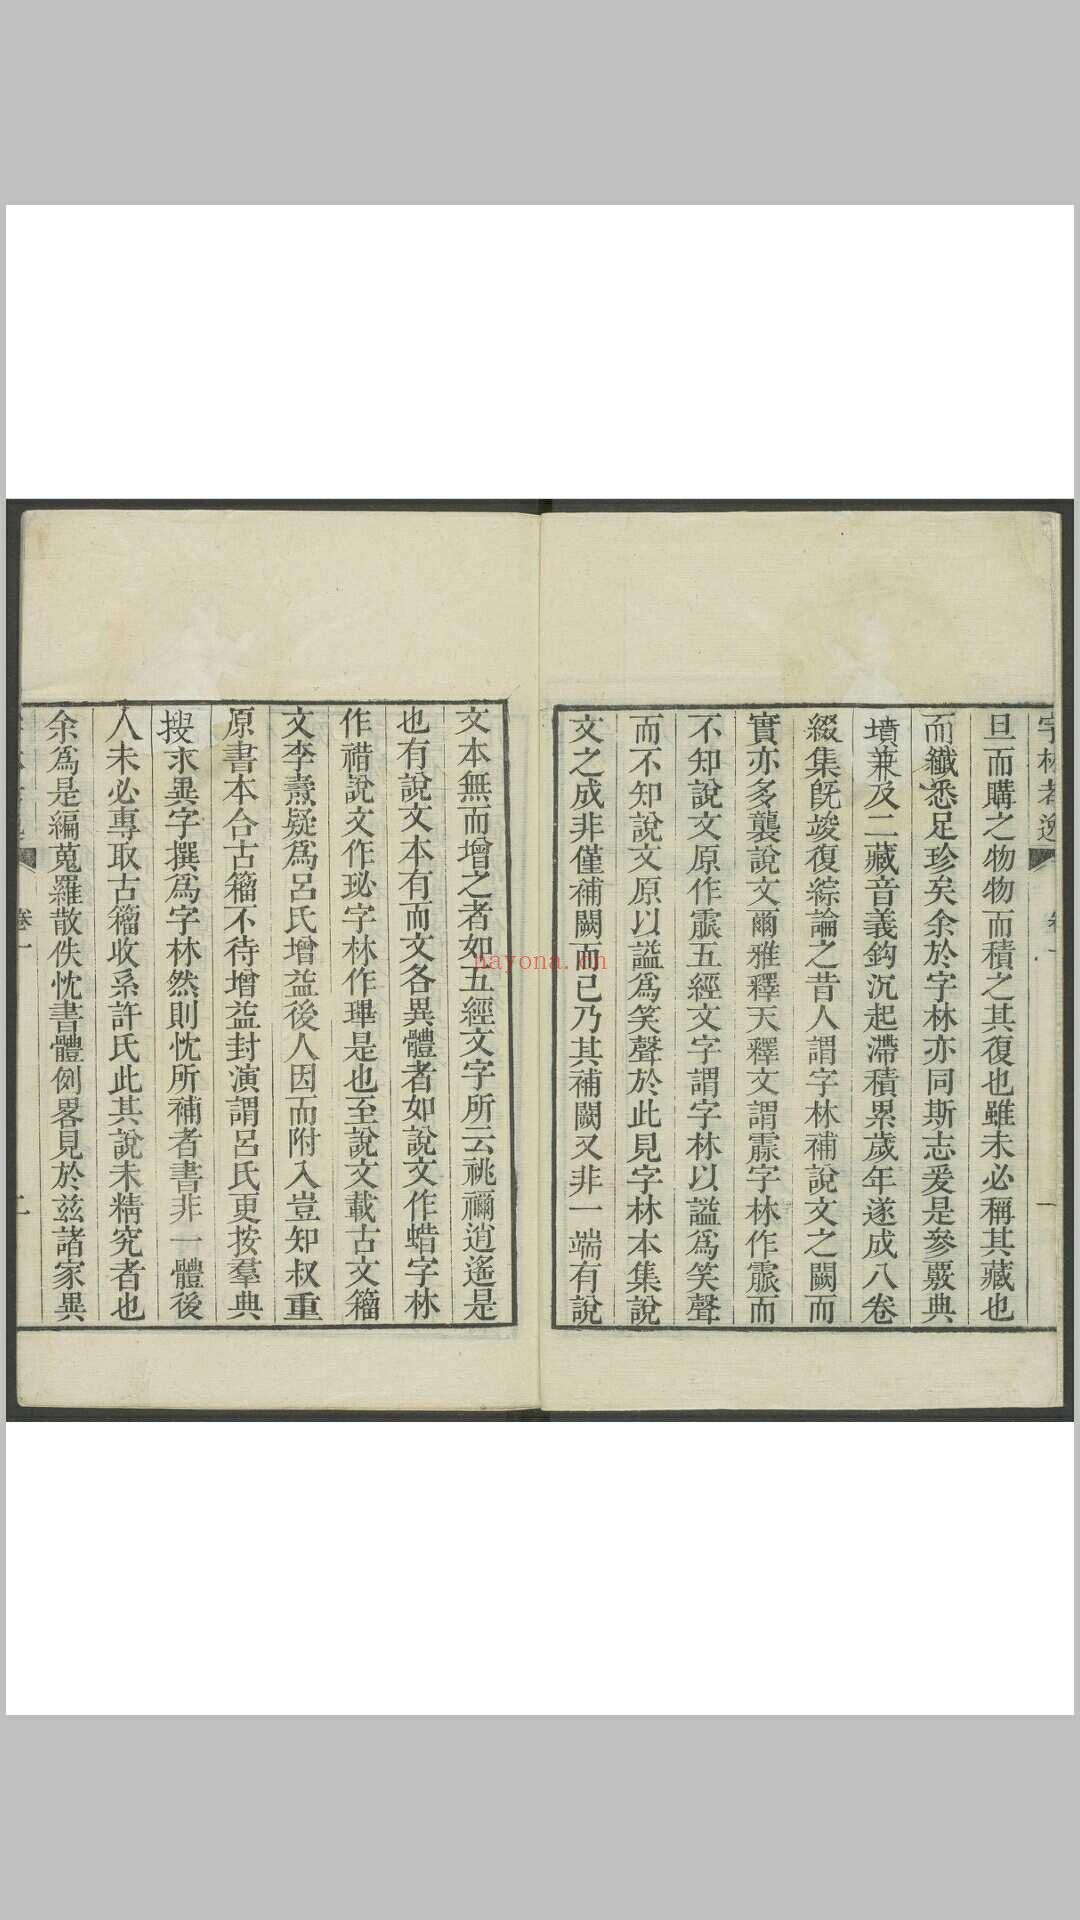 字林考逸 卷一 一
旦而購之物物而積之其復也雖未必稱其藏也
而纖悉足珍矣余於字林亦同斯志爰是參覈典
墳兼及二藏音義鈎沉起滯積累歲年遂成八卷
綴集旣竣復綜論之昔人謂字林補說文之闕而
實亦多襲說文爾雅釋天釋文謂霢字林作霡而
不知說文原作霡五經文字謂字林以謚爲笑聲
而不知說文原以謚爲笑聲於此見字林本集說
文之成非僅補闕而已乃其補闕又非一端有說
文本無而增之者如五經文字所云祧禰逍遙是
也有說文本有而文各異體者如說文作蜡字林
作䄍說文作珌字林作㻫是也至說文載古文籀
文李燾疑爲呂氏增益後人因而附入豈知叔重
原書本合古籀不待增益封演謂呂氏更按羣典
搜求異字撰爲字林然則忱所補者書非一體後
人未必專取古籀收系許氏此其說未精究者也
余爲是編蒐羅散佚忱書體例畧見於兹諸家異
卷一
nayona.cn